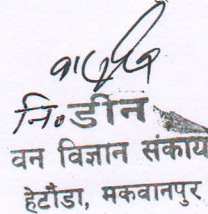 नि. डीन
वन विज्ञान संकाय
हेटौंडा, मकवानपुर